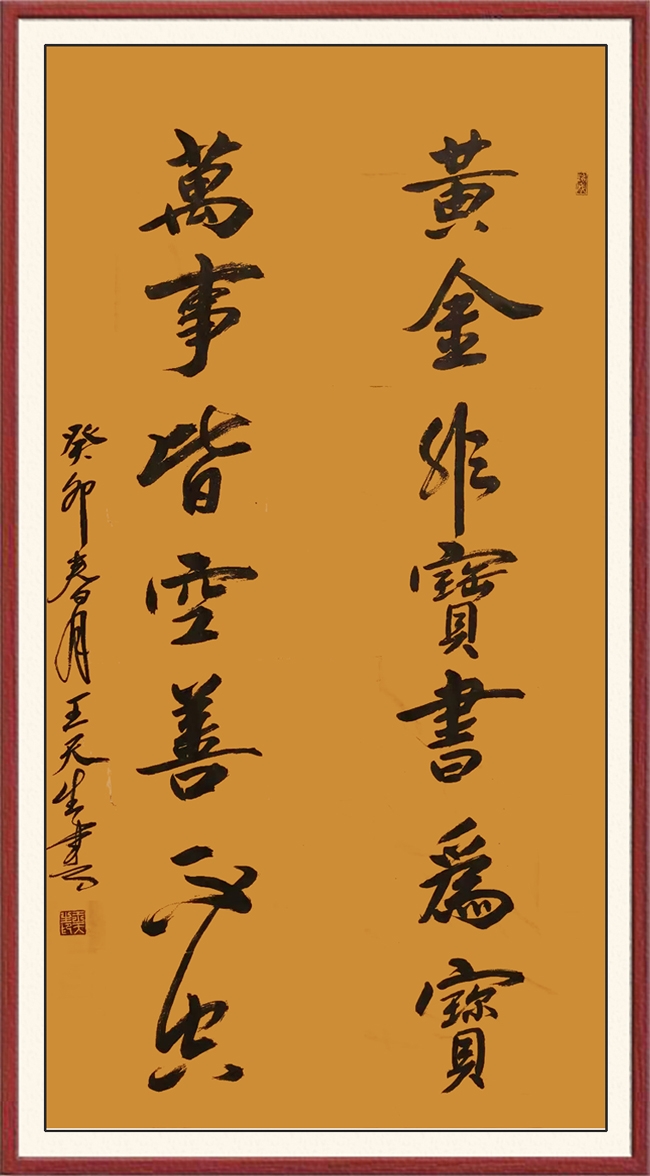 黄金非寶書爲寶
萬事皆空善不空
癸卯春月王天生書